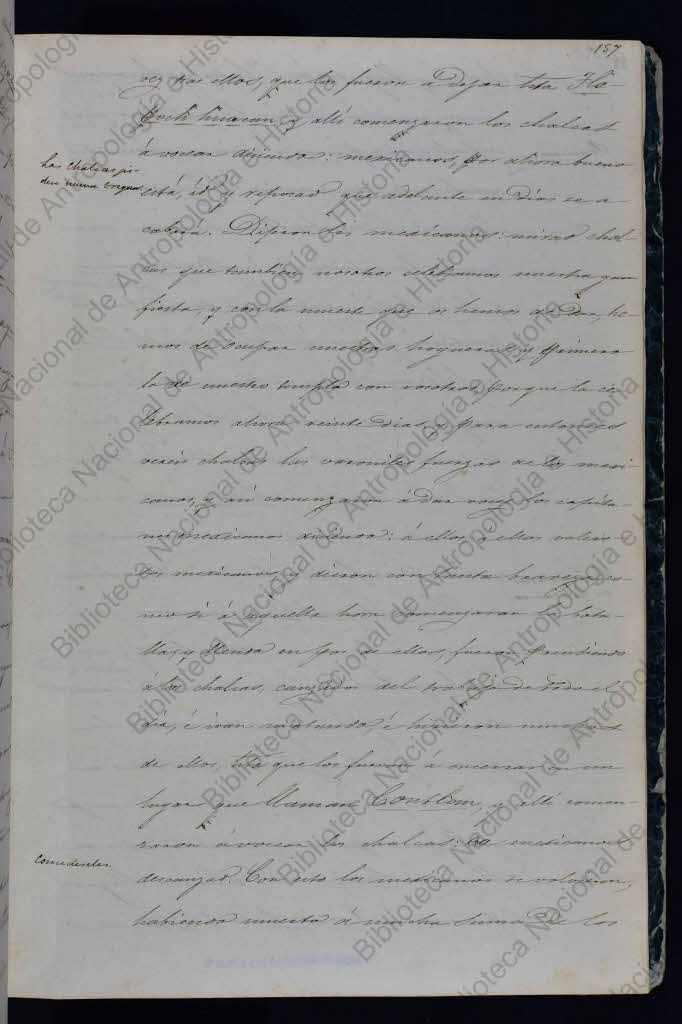 157
vez tras ellos, que los fueron á dejar hta Tla
pech huacan, y allí comenzaron los chalcas
á vocear diciendo: mexicanos, por ahora bueno
está, id y reposad que adelante en dias se a
cabará. Dijeron los mexicanos: mirad chal
cas que tambien nosotros celebramos nuestra gran
fiesta, y con la muerte que os hemos de dar, he
mos de ocupar nuestras hogueras, y primero
lo de nuestro templo con vosotros, porque la ce
lebramos ahora veinte dias, y para entonces
vereis chalcas las varoniles fuerzas de los mexi
canos, y así comenzaron á dar voces los capita
nes mexicanos diciendo: á ellos, á ellos valero
sos mexicanos, y dieron con tanta braveza, co
mo si á aquella hora comenzaran la bata
lla, y yendo en pos de ellos, fueron prendiendo
á los chalcas, cansados del trabajo de todo el
dia, é ivan matando, é hirieron muchos
de ellos, hta que los fueron á encerrar en un
lugar que llaman Contlan, y allí comen
zaron á vocear los chalcas: ea mexicanos
descanzad. Con esto los mexicanos se volvieron,
habiendo muerto á mucha suma de los
los chalcas pi-
den nueva tregua
Concedesela
Biblioteca Nacional de Antropología e Historia